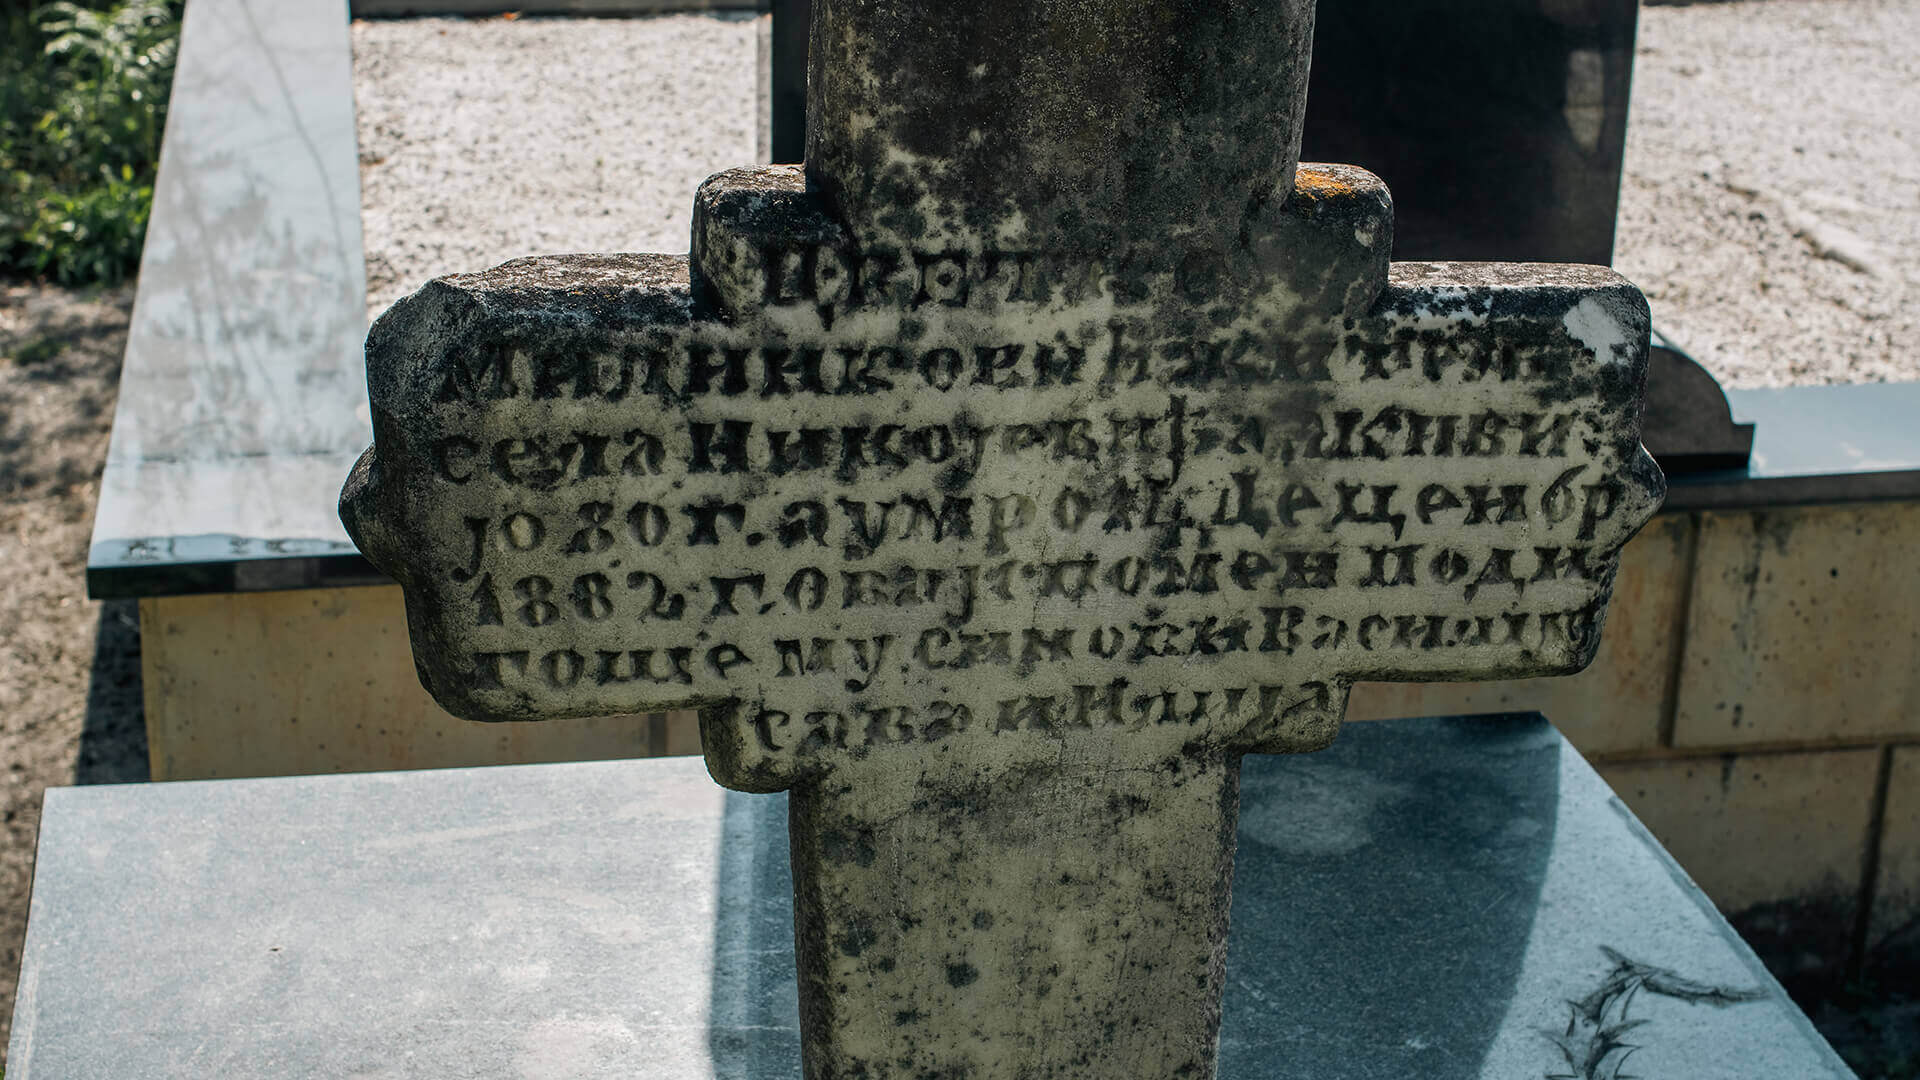 ЦВЕТКО
МИЛИНКОВИЋ ЖИТЕЉ
села Никојевића покиви:
јо 80 г. а умро 14 Деценбр
1882 г. Овај спомен поди
гоше му. Симовни Василије
сава и Илија